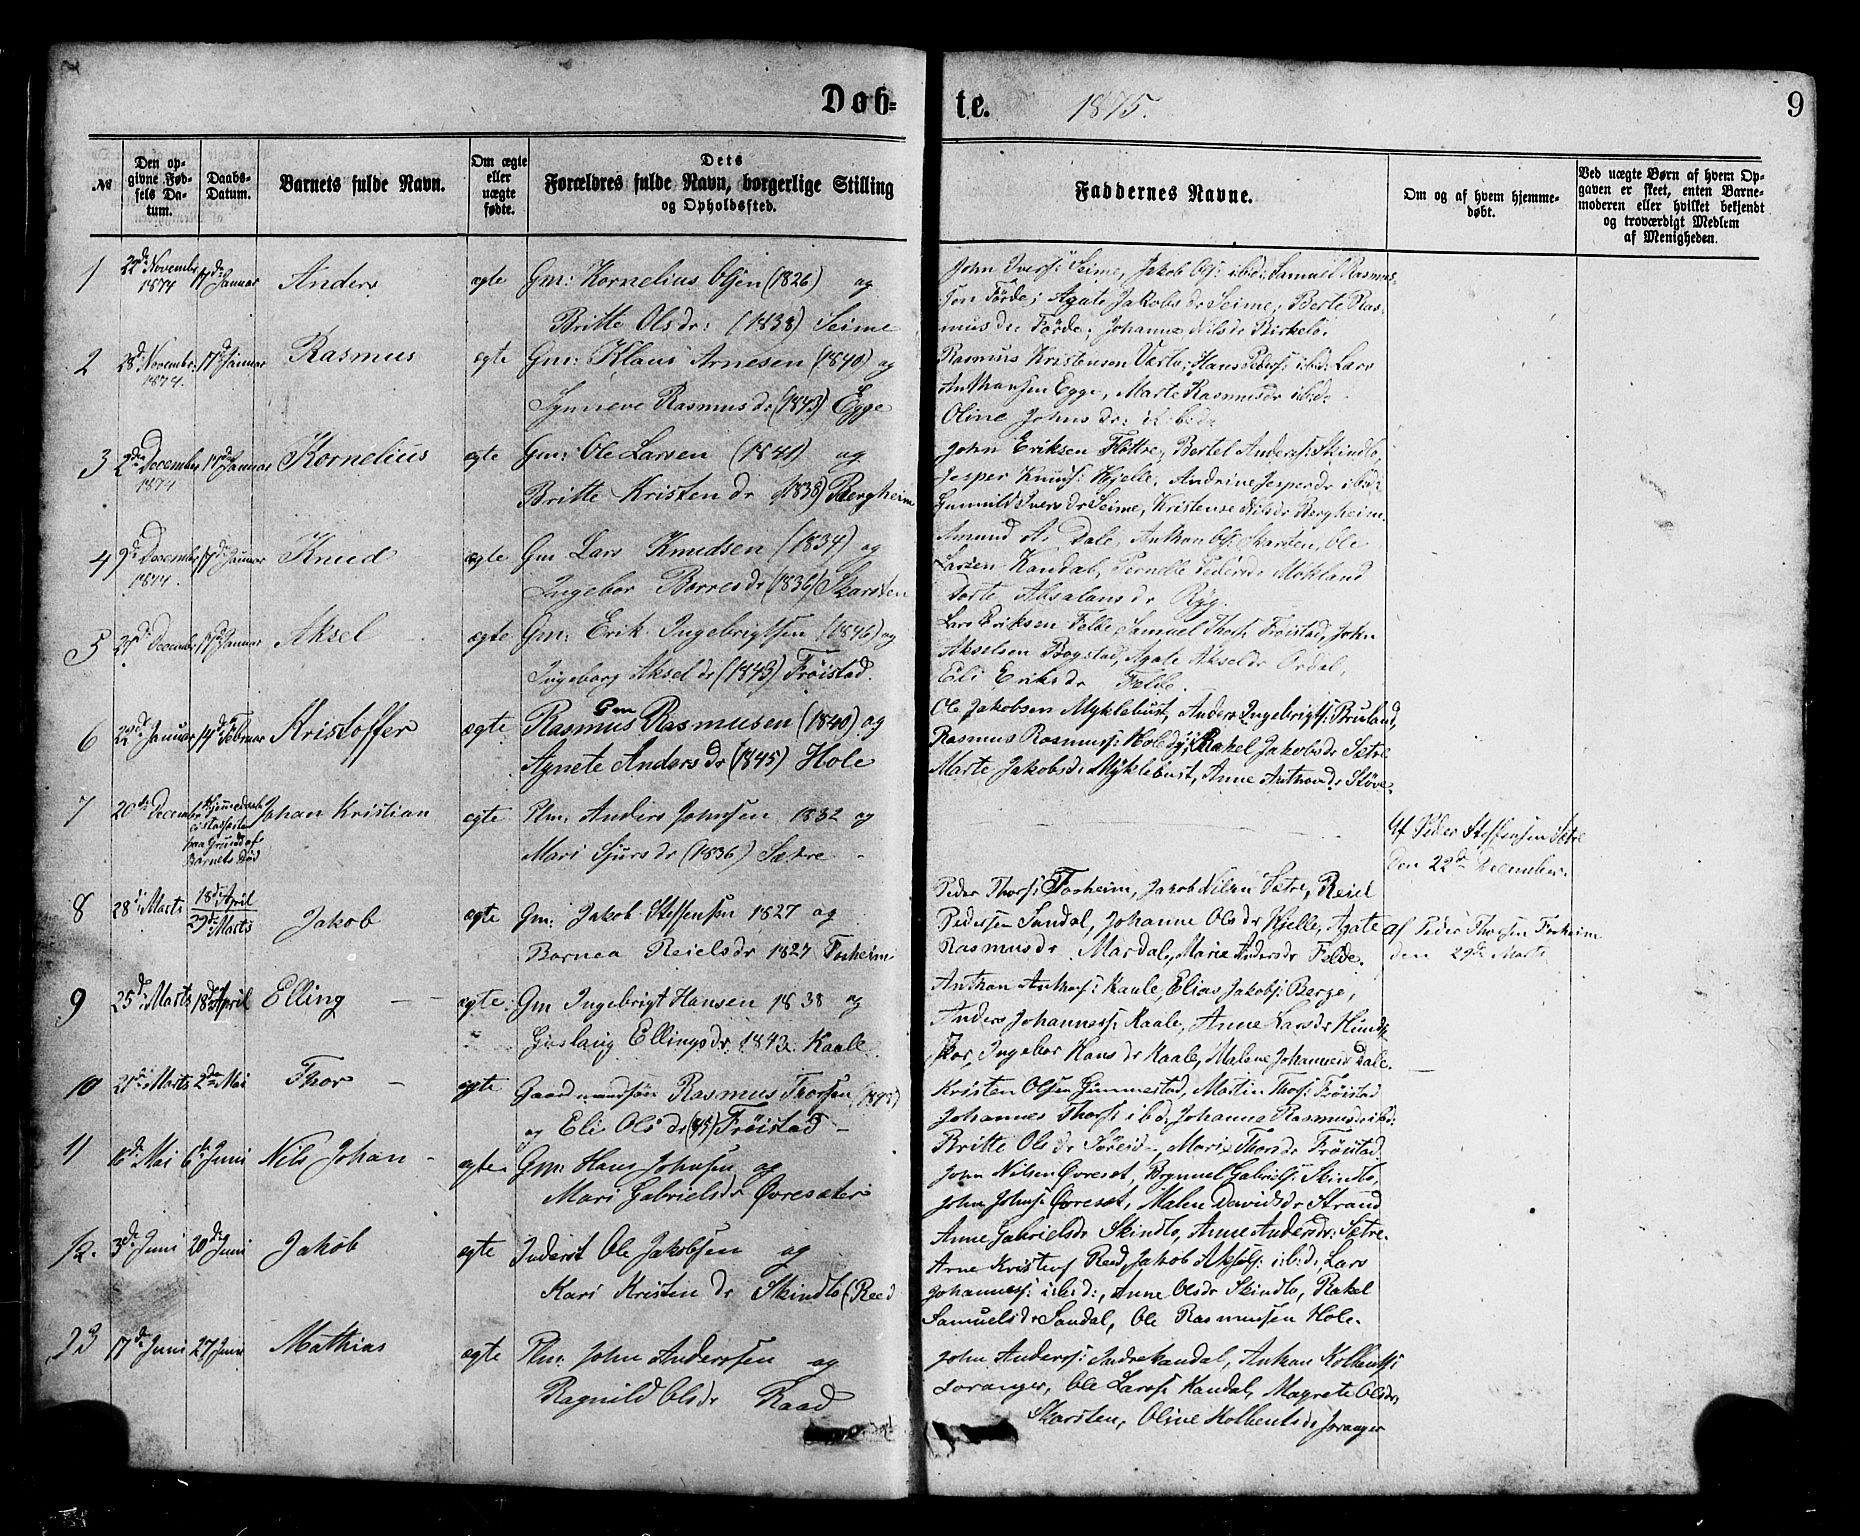 Døb-
te.
1875.
9
№
Den op-
givne Fød-
sels Da-
tum.
Daabs-
Datum.
Barnets fulde Navn.
Om ægte
eller
uægte
fødte.
Dets
Forældres fulde Navn, borgerlige Stilling
og Opholdssted.
Faddernes Navne.
Om og af hvem hjemme-
døbt.
Ved uægte Børn af hvem Op-
gaven er skeet, enten Barne-
moderen eller hvilket bekjendt
og troværdigt Medlem
af Menigheden.
1 22de Novembr 1874 17de Januar Anders ægte Gm: Kornelius Olsen (1826) og
Britte Olsdr: (1838) Seime
John Ivers: Seime, Jakob Ols: ibd: Samuel Rasmus-
sen Førde; Agate Jakobsdr Seime; Berte Ras-
musdr Førde; Johanne Nilsdr Birkelo.
2 28de Novembr 1874. 17de Januar Rasmus ægte Gm: Klaus Arnesen (1840) og
Synneve Rasmusdr (1843) Egge
Rasmus Kristensen Hans Peders: ibd: Lars
Anthonsen Egge, Marte Rasmusdr ibd:
Oline Johnsdr: ibd:
3 2den December 1874 17de Januar Kornelius ægte Gm: Ole Larsen (1841) og
Britte Kristendr (1838) Bergheim
John Eriksen Fløttre, Bertel Anders: Skindlo,
Jesper Knuds: Hjelle, Andrine Jesperdr ibd:
Gunnild Iversdr Seime, Kristense Nilsdr Bergheim.
4 9de December 1874. 17de Januar Knud ægte Gm Lars Knudsen (1834) og
Ingebor Borresdr (1836) Skarsten
Amund A: Dale, Anthon Ols: Skarsten, Ole
Larsen Kandal, Pernelle Pedersdr Møkland
Dorte Absalonsdr Ryg.
5 December 17de Januar Aksel ægte Gm: Erik Ingebrigtsen (1846) og
Ingeborg Akseldr (1843) Frøistad.
Lars Eriksen Felde, Samuel Thors: Frøistad, John
Akselsen Bogstad, Agate Akseldr Ordal,
Eli Eriksdr Felde.
6 22de Januar 14de Februar Kristoffer ægte Gm Rasmus Rasmusen (1840) og
Agnete Andersdr (1845) Hole
Ole Jakobsen Myklebust, Anders Ingebrigts: Bruland,
Rasmus Rasmuss: Hole Rakel Jakobsdr Sætre
Marte Jakobsdr Myklebust, Anne Anthondr Støve.
7 20de Decembr Hjemmedøbt
paa Grund af
Barnets Død
Johan Kristian ægte Plm: Anders Johnsen 1832 og
Mari Sjursdr (1836) Sætre
Af Peder Steffensen Sætre
den 22de December.
8 28de Marts 18de April
29de Marts
Jakob ægte Gm: Jakob Steffensen 1827 og
Bornea Reielsdr 1827 Forheim
Peder Thors: Forheim, Jakob Nilsen Sætre, Reiel
Pedersen Sandal, Johanne Olsdr Hjelle, Agate
Rasmusdr Mardal, Marie Andersdr Felde.
af Peder Thorsen Forheim
den 29de Marts
9 25de Marts 18de April Elling ægte Gm Ingebrigt Hansen 1838 og
Gjøslaug Ellingsdr 1842 Kaale
Anthon Anthons: Kaale, Elias Jakobs: Berge,
Anders Johanness: Kaale, Anne Larsdr Hunds-
kor, Ingebor Hansdr Kaale, Malene Johannesdr Dale.
10 Marts 2den Mai Thor ægte Gaardmandssøn Rasmus Thorsen
og Eli Olsdr (45) Frøistad
Kristen Olsen Gimmestad, Martin Thors: Frøistad
Johannes Thors: ibd: Johanne Rasmusdr ibd:
Britte Olsdr Marie Thorsdr Frøistad.
11 16de Mai 6te Juni Nils Johan ægte Gm: Hans Johnsen og
Mari Gabrielsdr Øvresæter
John Nilsen Øvreset, Brynnel Gabriels: Skindlo,
John Johns: Øvreset, Malen Davidsdr Strand
Anne Gabrielsdr Skindlo, Anne Andersdr: Sætre.
12. 3de Juni 20de Juni Jakob ægte Inderst Ole Jakobsen og
Kari Kristendr Skindlo (Reed
Arne Kristens Reed, Jakob Aksels: ibd:, Lars
Johanness: ibd:, Anne Olsdr Skindlo, Rakel
Samuelsdr Sandal, Ole Rasmussen Hole.
13 17de Juni 27 Juni Mathias ægte Plm: John Anderssen og
Ragnild Olsdr Raad
John Anderss: Indrekandal, Anthon Kolbents:
Joranger, Ole Larss: Kandal, Magrete Olsdr,
Skarsten, Oline Kolbentsdr Joranger